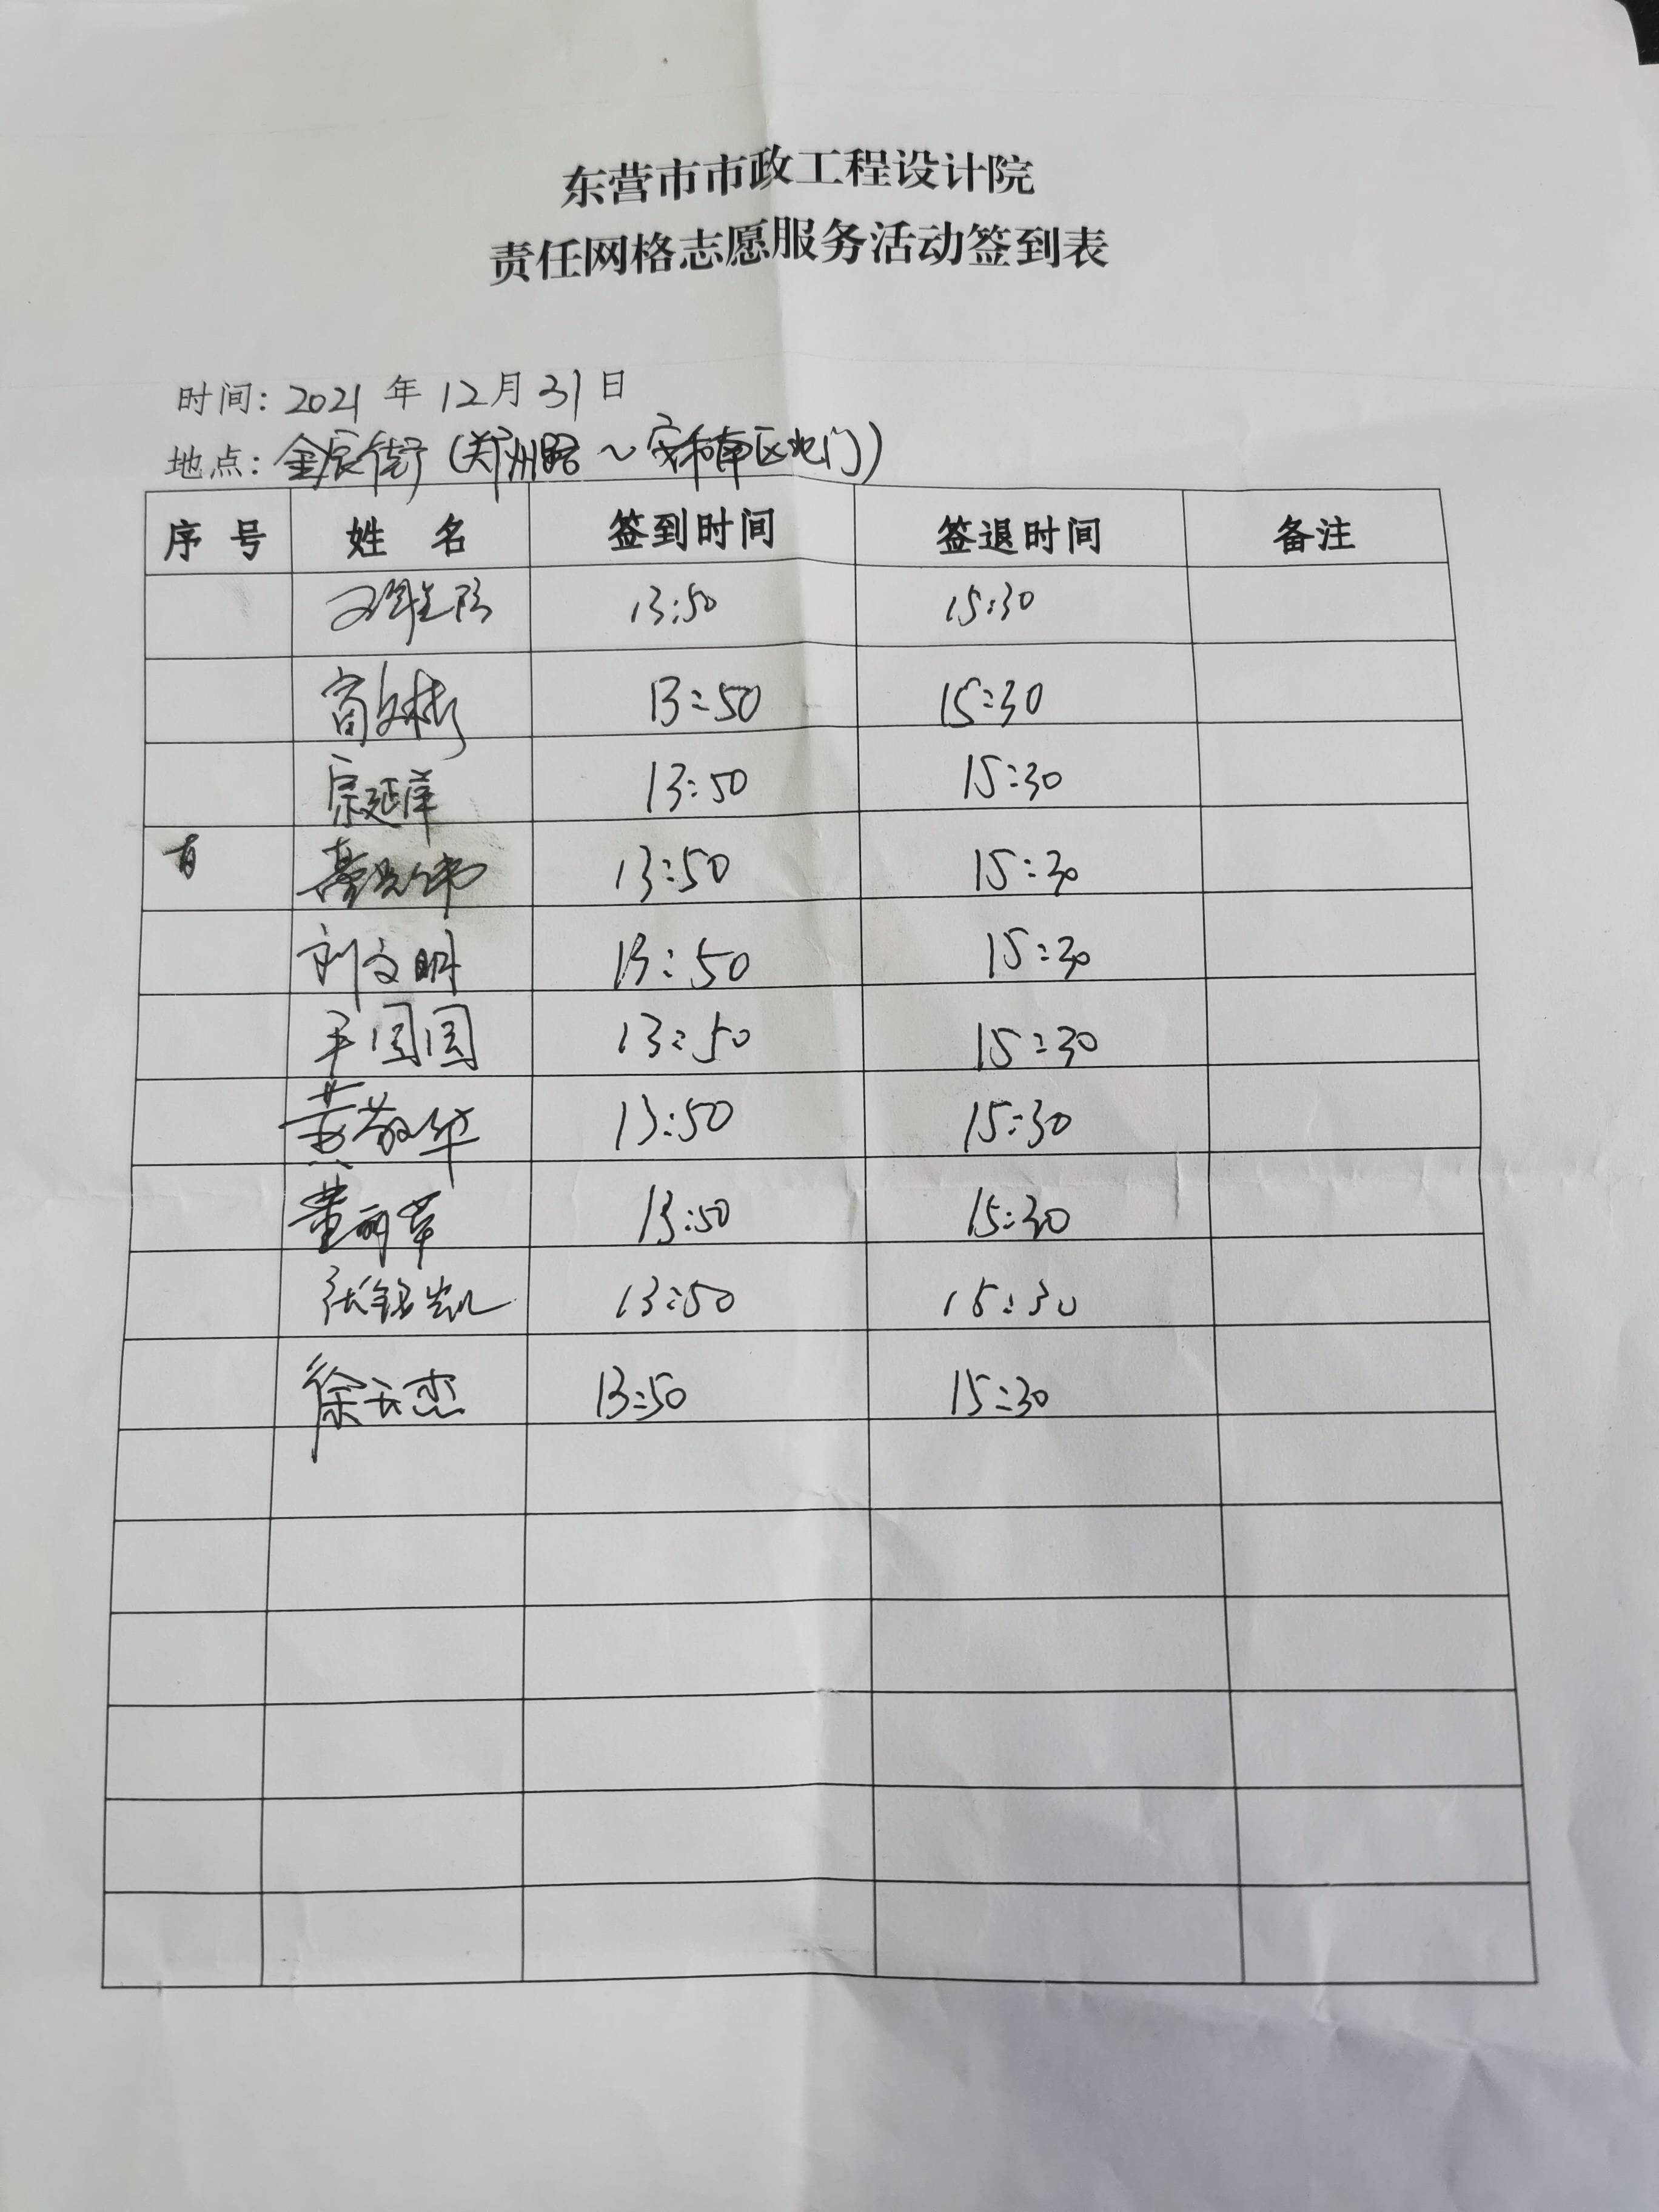 东营市市政工程设计院
责任网格志愿服务活动签到表
时间: 2021 年 12月31日
地点: 金辰街 (郑州路 ~ 安和南区北门)
序 号 姓 名 签到时间 签退时间 备注
13:50 15:30
13:50 15:30
宗延泽 13:50 15:30
13:50 15:30
刘文明 13:50 15:30
13:50 15:30
黄敬华 13:50 15:30
董丽苹 13:50 15:30
张铭凯 13:50 15:30
徐云杰 13:50 15:30